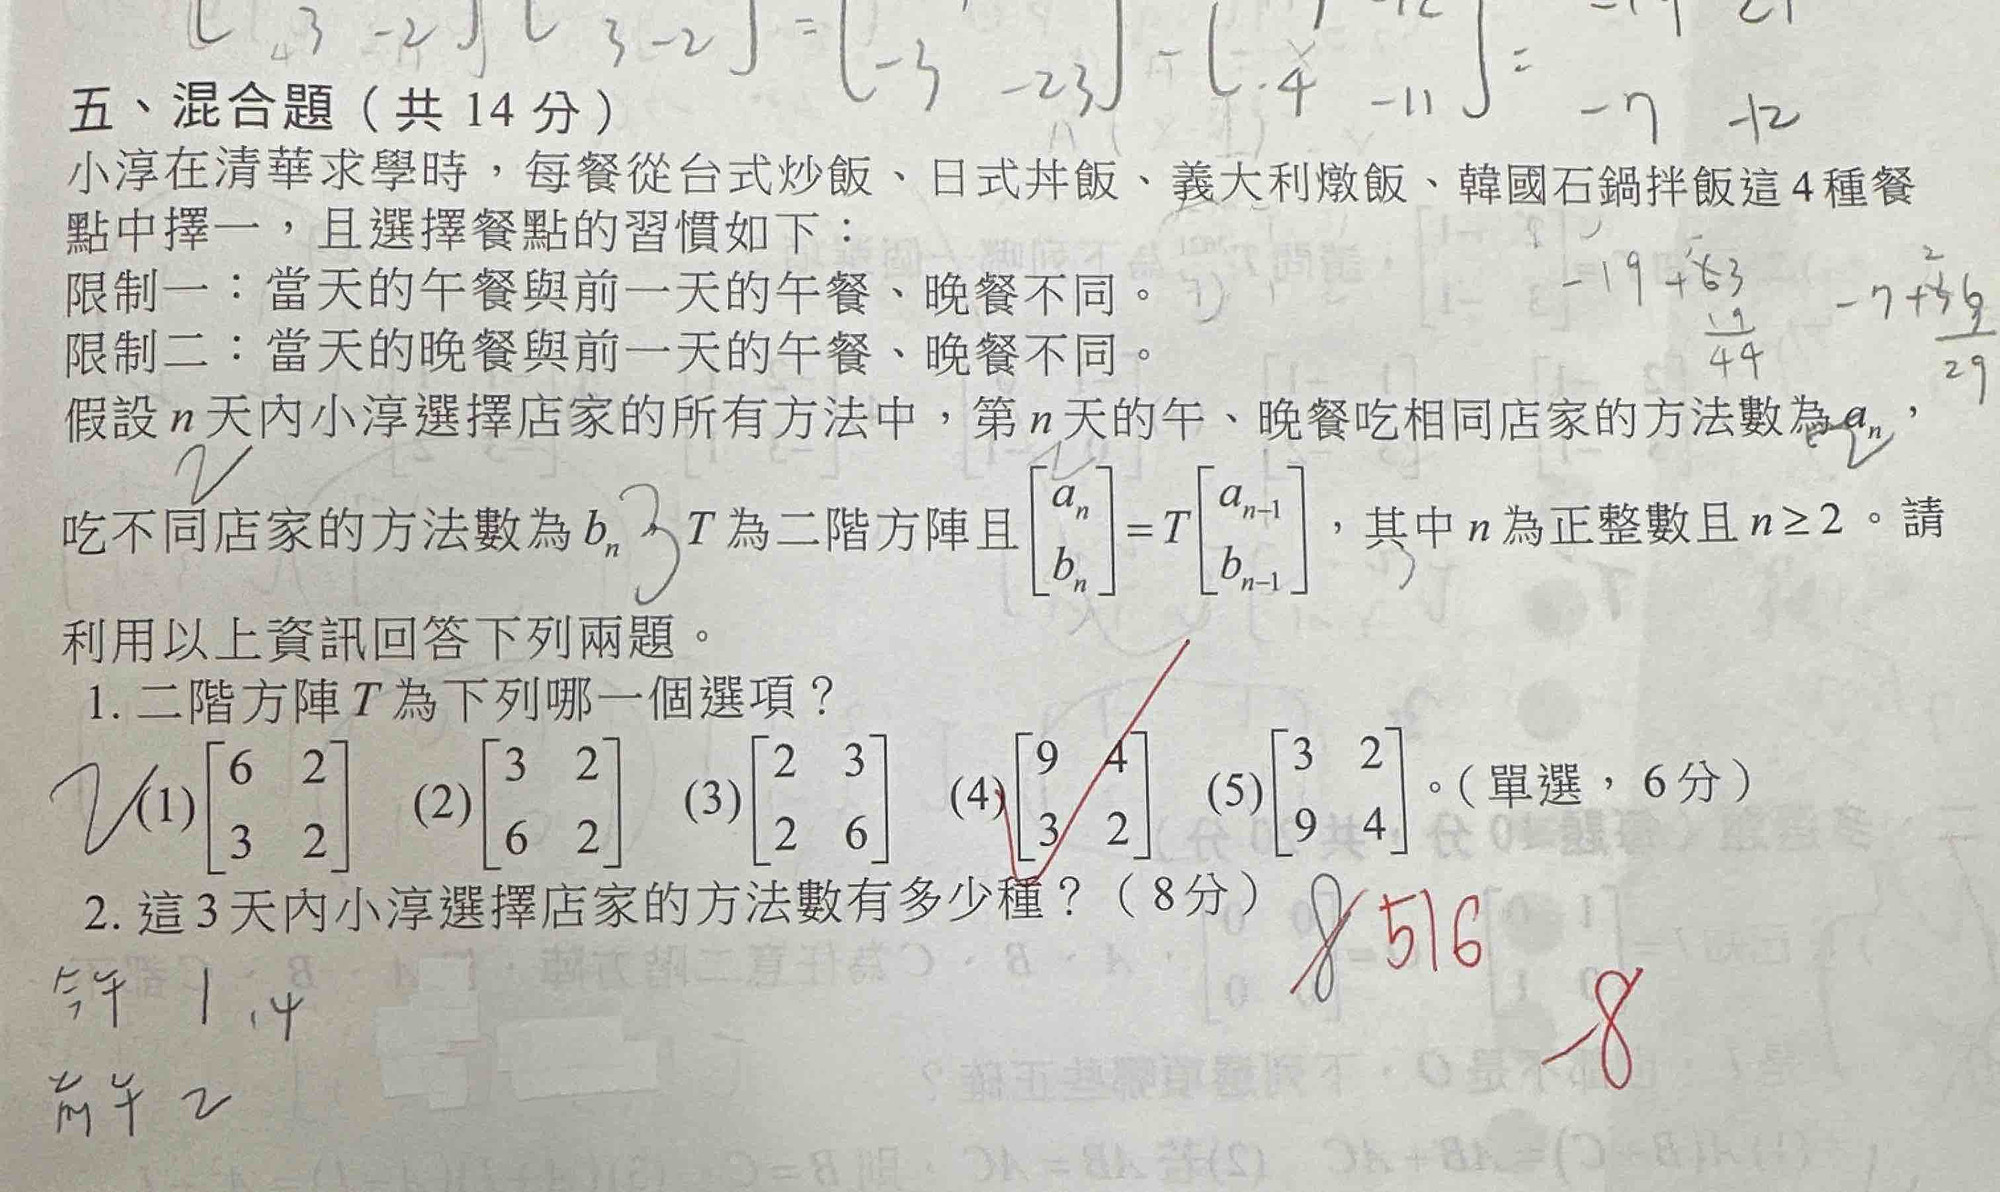 3 -2 3 -2 = -3 -23 - 4 -11 = -19 21
-7 -12
五、混合題（共 14 分）
小淳在清華求學時，每餐從台式炒飯、日式丼飯、義大利燉飯、韓國石鍋拌飯這4種餐
點中擇一，且選擇餐點的習慣如下：
限制一：當天的午餐與前一天的午餐、晚餐不同。
限制二：當天的晚餐與前一天的午餐、晚餐不同。
-19+63
19
44
-7+36
29
假設 n 天內小淳選擇店家的所有方法中，第 n 天的午、晚餐吃相同店家的方法數為 aₙ，
吃不同店家的方法數為 bₙ，T 為二階方陣且 [aₙ bₙ] = T [aₙ₋₁ bₙ₋₁]，其中 n 為正整數且 n ≥ 2。請
利用以上資訊回答下列兩題。
1. 二階方陣 T 為下列哪一個選項？
2 (1) [6 2 3 2] (2) [3 2 6 2] (3) [2 3 2 6] (4) [9 4 3 2] (5) [3 2 9 4]。（單選，6分）
2. 這3天內小淳選擇店家的方法數有多少種？（8分） 8 516
-8
今午 1 , 4
前午 2